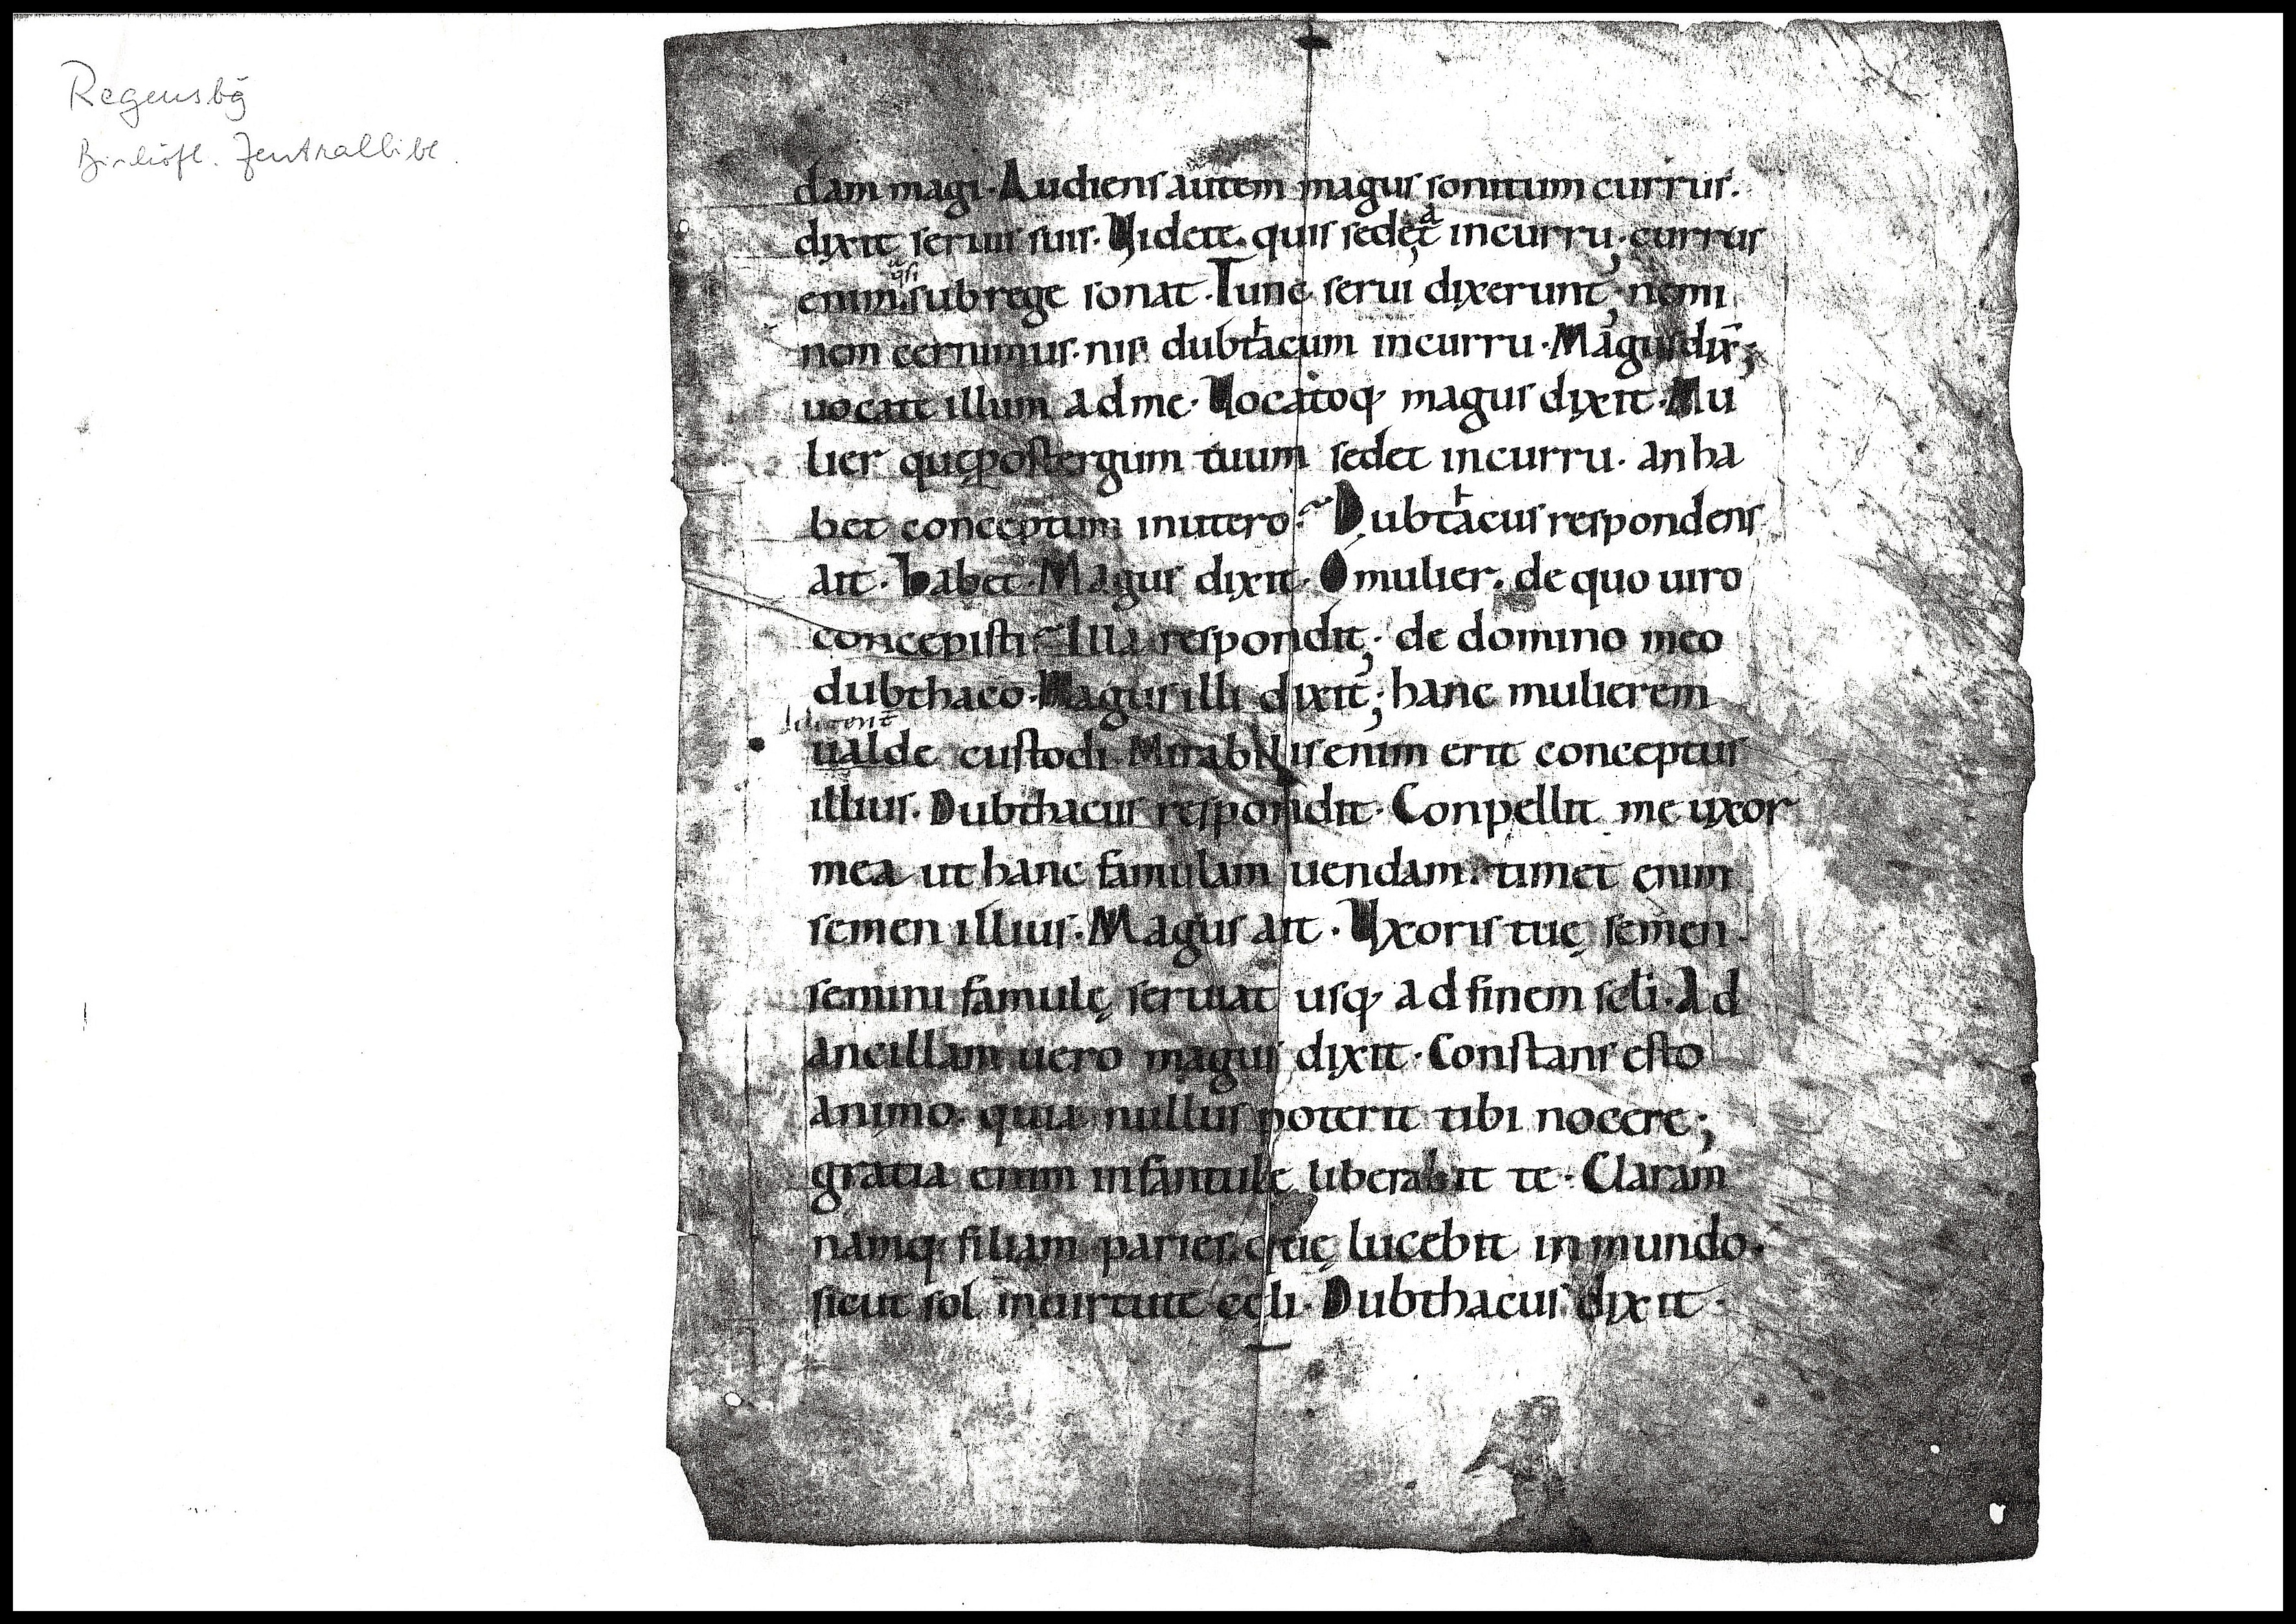 Regensbg̃
Bischöfl. Zentralbibl.
dam magi. Audiens autem magus sonitum currus.
dixit seruis suis. Uidete. quis sedeat in curru; currus
enim qͣsi sub rege sonat. Tunc serui dixerunt; nemi
nem cernimus. nisi dubthacum in curru. Magus dix̄;
uocate illum ad me. Uocatoq; magus dixit. Mu
lier quę post tergum tuum sedet in curru. an ha
bet conceptum in utero? Dubthacus respondens
ait. habet. Magus dixit. O mulier. de quo uiro
concepisti? Illa respondit; de domino meo
dubthaco. Magus illi dixit; hanc mulierem
ualde custodi. Mirabilis enim erit conceptus
illius. Dubthacus respondit. Conpellit me uxor
mea ut hanc famulam uendam. timet enim
semen illius. Magus ait. Uxoris tuę semen.
semini famulę seruiat usq; ad finem scłi. Ad
ancillam uero magus dixit. Constans esto
animo. quia nullus poterit tibi nocere;
gratia enim infantulę liberabit te. Claram
namq; filiam paries. quę lucebit in mundo.
sicut sol in uirtute cęli. Dubthacus dixit.